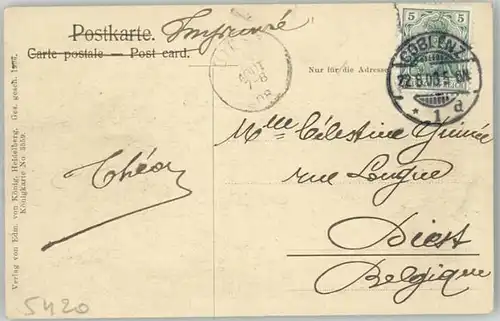 Postkarte. Imprimé
Carte postale — Post card.
Nur für die Adresse
5 5
COBLENZ
* 1 d
AOUT
7-8
08
Mlle Célestine Guinée
rue Longue
Diest
Belgique
Théo
Verlag von Edm. von König, Heidelberg. Ges. gesch.
Königkarte No.
5420